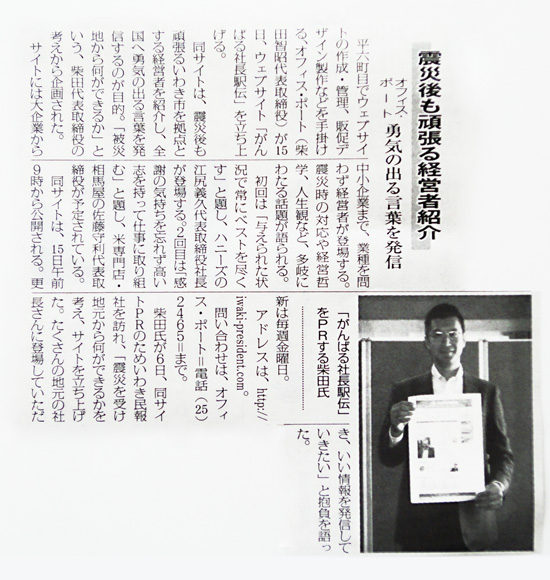 震災後も頑張る経営者紹介
オフィス・
ポート
勇気の出る言葉を発信
平六町目でウェブサイ
トの作成・管理、販促デ
ザイン製作などを手掛け
る、オフィス・ポート（柴
田智昭代表取締役）が15
日、ウェブサイト「がん
ばる社長駅伝」を立ち上
げる。
同サイトは、震災後も
頑張るいわき市を拠点と
する経営者を紹介し、全
国へ勇気の出る言葉を発
信するのが目的。「被災
地から何ができるか」と
いう、柴田代表取締役の
考えから企画された。
サイトには大企業から
中小企業まで、業種を問
わず経営者が登場する。
震災時の対応や経営哲
学、人生観など、多岐に
わたる話題が語られる。
初回は「与えられた状
況で常にベストを尽く
す」と題し、ハニーズの
江尻義久代表取締役社長
が登場する。2回目は「感
謝の気持ちを忘れず高い
志を持って仕事に取り組
む」と題し、米専門店・
相馬屋の佐藤守利代表取
締役が予定されている。
同サイトは、15日午前
9時から公開される。更
新は毎週金曜日。
アドレスは、http://
iwaki-president.com。
問い合わせは、オフィ
ス・ポート＝電話（25）
2465＝まで。
柴田氏が6日、同サイ
トPRのためいわき民報
社を訪れ、「震災を受け
地元から何ができるかを
考え、サイトを立ち上げ
た。たくさんの地元の社
長さんに登場していただ
き、いい情報を発信して
いきたい」と抱負を語っ
た。
「がんばる社長駅伝」
をPRする柴田氏